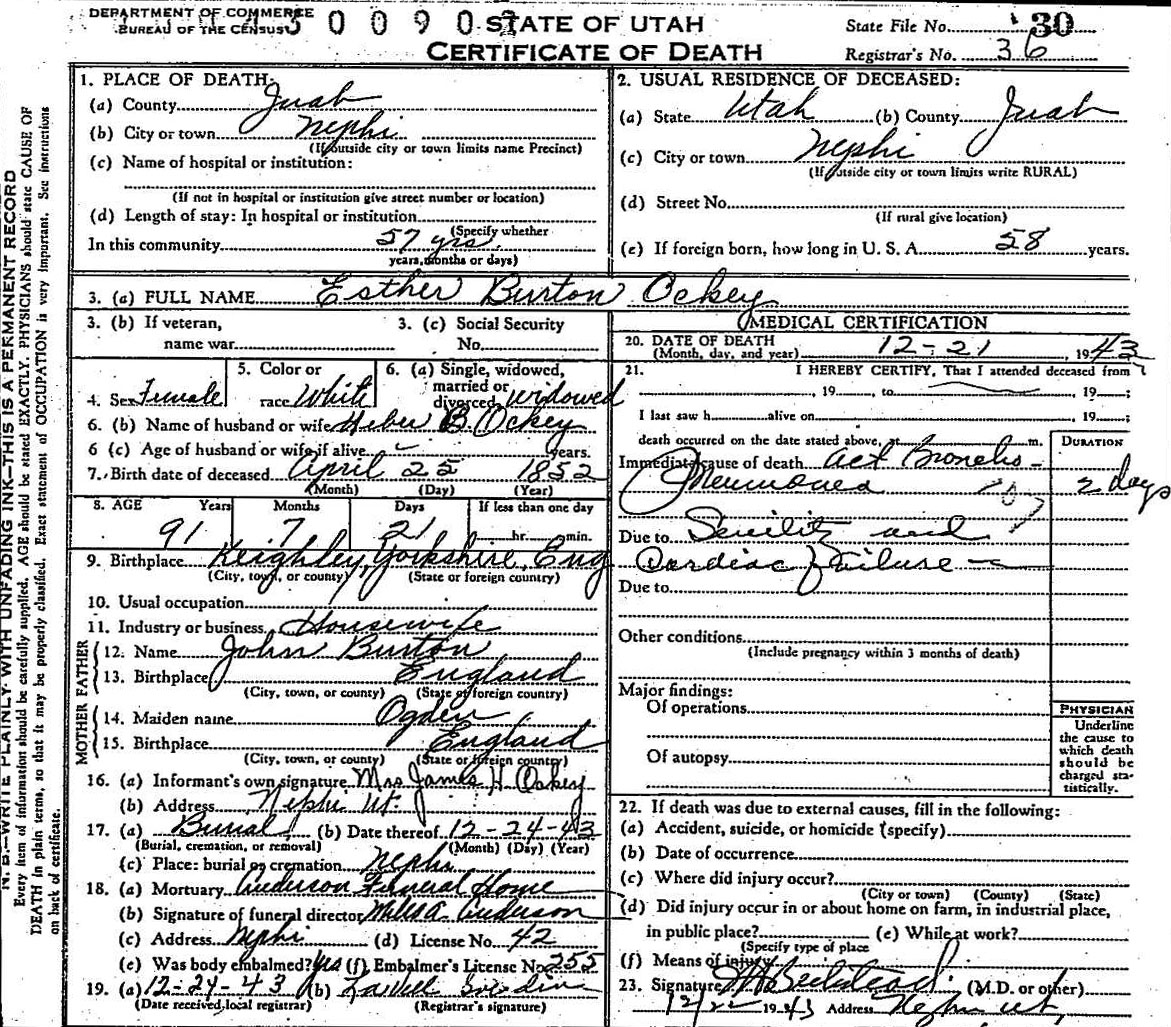 DEPARTMENT OF COMMERCE
BUREAU OF THE CENSUS
3 0 0 9 0
STATE OF UTAH
CERTIFICATE OF DEATH
State File No. 30
Registrar's No. 36
1. PLACE OF DEATH:
(a) County Juab
(b) City or town Nephi
(If outside city or town limits name Precinct)
(c) Name of hospital or institution:
(If not in hospital or institution give street number or location)
(d) Length of stay: In hospital or institution
(Specify whether
In this community 57 yrs.
years, months or days)
2. USUAL RESIDENCE OF DECEASED:
(a) State Utah (b) County Juab
(c) City or town Nephi
(If outside city or town limits write RURAL)
(d) Street No.
(If rural give location)
(e) If foreign born, how long in U. S. A. 58 years.
3. (a) FULL NAME Esther Burton Ockey
3. (b) If veteran,
name war
3. (c) Social Security
No.
4. Sex Female
5. Color or
race White
6. (a) Single, widowed,
married or
divorced widowed
6. (b) Name of husband or wife Heber B. Ockey
6 (c) Age of husband or wife if alive years.
7. Birth date of deceased April 25 1852
(Month) (Day) (Year)
8. AGE Years Months Days If less than one day
91 7 21 hr. min.
9. Birthplace Keighley, Yorkshire, Eng
(City, town, or county) (State or foreign country)
10. Usual occupation
11. Industry or business Housewife
FATHER
12. Name John Burton
13. Birthplace England
(City, town, or county) (State or foreign country)
MOTHER
14. Maiden name Ogden
15. Birthplace England
(City, town, or county) (State or foreign country)
16. (a) Informant's own signature Mrs James H. Ockey
(b) Address Nephi Ut.
17. (a) Burial (b) Date thereof 12-24-43
(Burial, cremation, or removal) (Month) (Day) (Year)
(c) Place: burial or cremation Nephi
18. (a) Mortuary Anderson Funeral Home
(b) Signature of funeral director Miles A. Anderson
(c) Address Nephi (d) License No. 42
(e) Was body embalmed? Yes (f) Embalmer's License No. 255
19. (a) 12-24-43 (b)
(Date received local registrar) (Registrar's signature)
MEDICAL CERTIFICATION
20. DATE OF DEATH
(Month, day, and year) 12-21, 1943
21. I HEREBY CERTIFY, That I attended deceased from
, 19 , to , 19 ;
I last saw h alive on , 19 ;
death occurred on the date stated above, at m.
DURATION
Immediate cause of death Act Broncho-
Pneumonea 107 2 days
Due to Senility and
Cardiac failure
Due to
Other conditions
(Include pregnancy within 3 months of death)
Major findings:
Of operations
Of autopsy
PHYSICIAN
Underline
the cause to
which death
should be
charged sta-
tistically.
22. If death was due to external causes, fill in the following:
(a) Accident, suicide, or homicide (specify)
(b) Date of occurrence
(c) Where did injury occur?
(City or town) (County) (State)
(d) Did injury occur in or about home on farm, in industrial place,
in public place? (e) While at work?
(Specify type of place
(f) Means of injury
23. Signature Beckstead (M.D. or other)
12/22 1943 Address Nephi, Ut,
N. B.—WRITE PLAINLY WITH UNFADING INK—THIS IS A PERMANENT RECORD
Every item of information should be carefully supplied. AGE should be stated EXACTLY. PHYSICIANS should state CAUSE OF
DEATH in plain terms, so that it may be properly classified. Exact statement of OCCUPATION is very important. See instructions
on back of certificate.